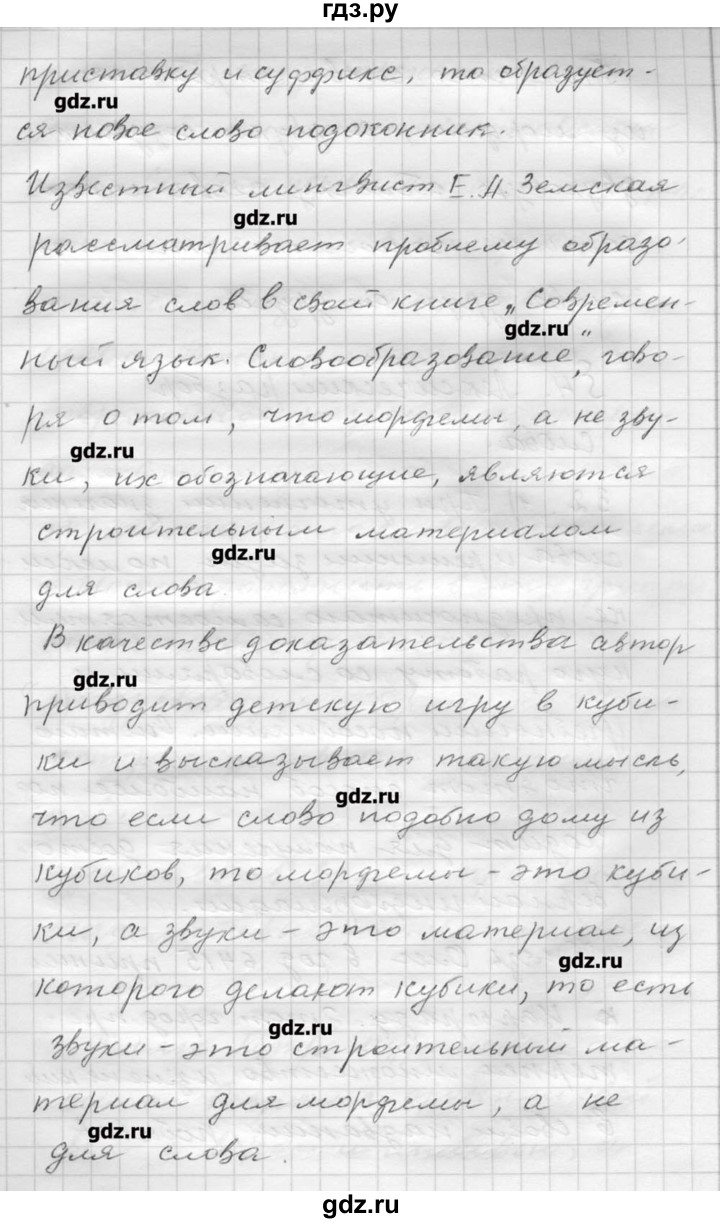 гдз.ру
приставку и суффикс, то образует-
gdz.ru
ся новое слово подоконник.
Известный лингвист Е.А Земская
gdz.ru
рассматривает проблему образо-
вания слов в свой книге „Современ-
gdz.ru
ный язык. Словообразование“, гово-
ря о том, что морфемы, а не зву-
gdz.ru
ки, их обозначающие, являются
строительным материалом
gdz.ru
для слова.
В качестве доказательства автор
gdz.ru
приводит детскую игру в куби-
ки и высказывает такую мысль,
gdz.ru
что если слово подобно дому из
кубиков, то морфемы - это куби-
ки, а звуки - это материал, из
gdz.ru
которого делают кубики, то есть
gdz.ru
звуки - это строительный ма-
териал для морфемы, а не
gdz.ru
для слова.
gdz.ru